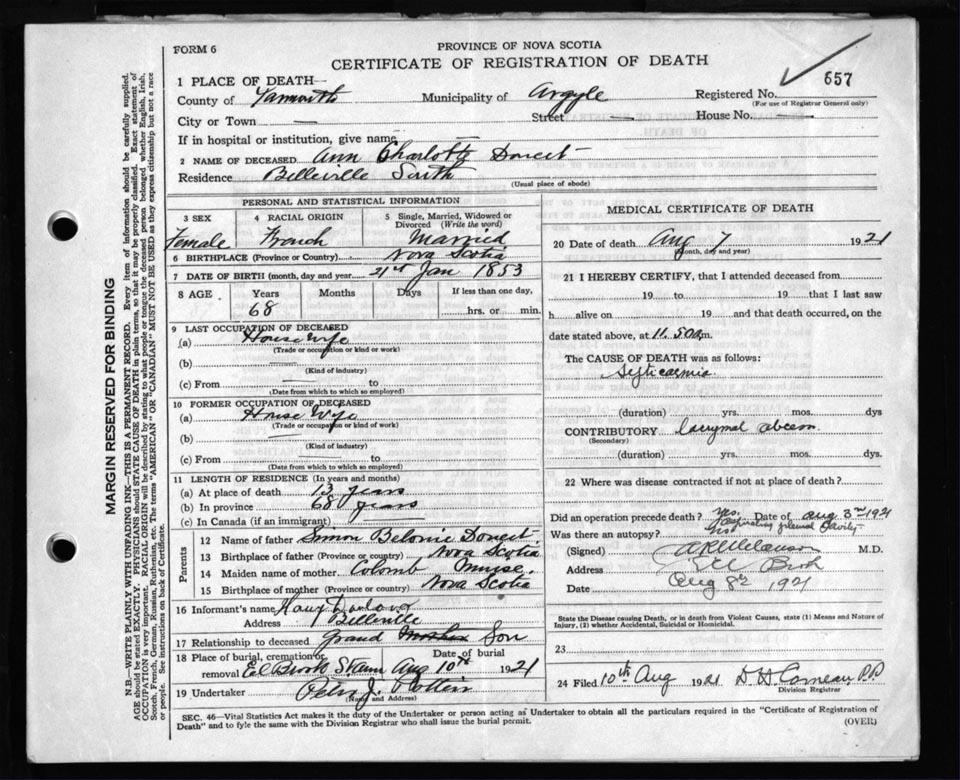 FORM 6
PROVINCE OF NOVA SCOTIA
CERTIFICATE OF REGISTRATION OF DEATH
557
1 PLACE OF DEATH—
County of Yarmouth Municipality of Argyle Registered No.
(For use of Registrar General only)
City or Town — Street — House No. —
If in hospital or institution, give name —
2 NAME OF DECEASED Ann Charlotte Doucet
Residence Belleville South
(Usual place of abode)
PERSONAL AND STATISTICAL INFORMATION
3 SEX 4 RACIAL ORIGIN 5 Single, Married, Widowed or Divorced (Write the word)
Female French Married
6 BIRTHPLACE (Province or Country) Nova Scotia
7 DATE OF BIRTH (month, day and year) 21st Jan 1853
8 AGE Years Months Days If less than one day,
68 hrs. or min.
9 LAST OCCUPATION OF DECEASED
(a) House Wife
(Trade or occupation or kind or work)
(b) —
(Kind of industry)
(c) From — to
(Date from which to which so employed)
10 FORMER OCCUPATION OF DECEASED
(a) House Wife
(Trade or occupation or kind of work)
(b) —
(Kind of industry)
(c) From — to
(Date from which to which so employed)
11 LENGTH OF RESIDENCE (In years and months)
(a) At place of death 13 years
(b) In province 68 years
(c) In Canada (if an immigrant) —
Parents
12 Name of father Simon Belonie Doucet
13 Birthplace of father (Province or country) Nova Scotia
14 Maiden name of mother Colomb Muise.
15 Birthplace of mother (Province or country) Nova Scotia
16 Informant's name
Address Belleville
17 Relationship to deceased Grand Mother Son
18 Place of burial, cremation or removal Date of burial
Eel Brook Aug 10th 1921
19 Undertaker Peter J. Pottier
(Name and Address)
MEDICAL CERTIFICATE OF DEATH
20 Date of death Aug 7 1921
(Month, day and year)
21 I HEREBY CERTIFY, that I attended deceased from
19 to 19 that I last saw
h alive on 19 and that death occurred, on the
date stated above, at 11.50 a m.
The CAUSE OF DEATH was as follows:
Septicaemia
(duration) yrs. mos. dys
CONTRIBUTORY abcess
(Secondary)
(duration) yrs. mos. dys.
22 Where was disease contracted if not at place of death?
Did an operation precede death? yes. Date of Aug 3rd 1921
Aspirating pleural Cavity
Was there an autopsy? no
(Signed) M.D.
Address Eel Brook
Date Aug 8th 1921
State the Disease causing Death, or in death from Violent Causes, state (1) Means and Nature of Injury, (2) whether Accidental, Suicidal or Homicidal.
23
24 Filed 10th Aug 1921 D H Comeau P.P.
Division Registrar
SEC. 46—Vital Statistics Act makes it the duty of the Undertaker or person acting as Undertaker to obtain all the particulars required in the "Certificate of Registration of
Death" and to fyle the same with the Division Registrar who shall issue the burial permit.
(OVER)
MARGIN RESERVED FOR BINDING
N.B.—WRITE PLAINLY WITH UNFADING INK—THIS IS A PERMANENT RECORD. Every item of information should be carefully supplied.
AGE should be stated EXACTLY. PHYSICIANS should STATE CAUSE OF DEATH in plain terms, so that it may be properly classified. Exact statement of
OCCUPATION is very important. RACIAL ORIGIN will be described by stating to what people or tongue the deceased person belonged whether English, Irish,
Scotch, French, German, Russian, Ruthenian, etc. The terms "AMERICAN" OR "CANADIAN" MUST NOT BE USED as they express citizenship but not a race
or people. See instructions on back of Certificate.